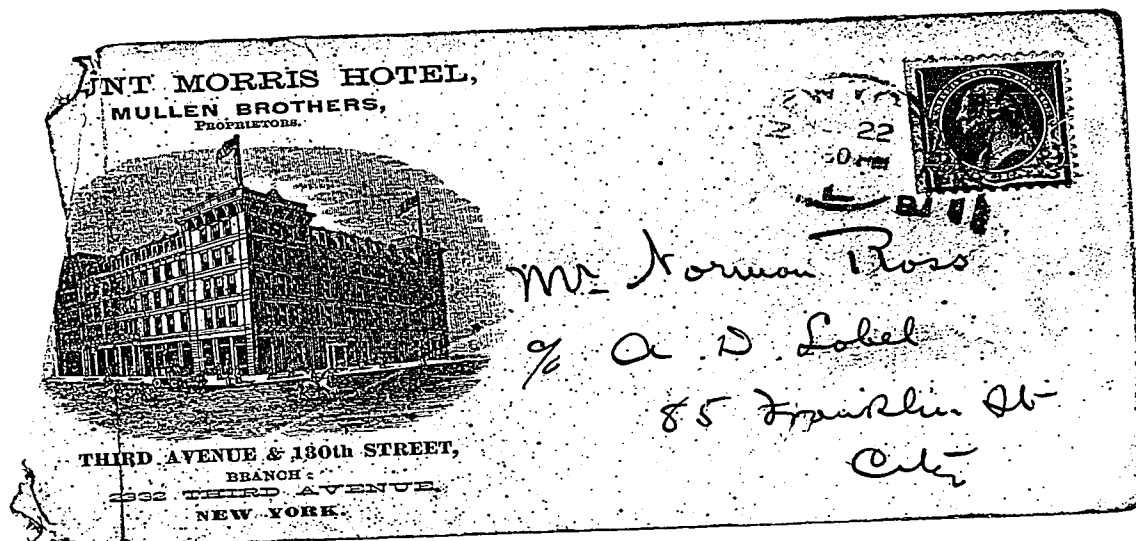 UNT MORRIS HOTEL,
MULLEN BROTHERS,
PROPRIETORS.
THIRD AVENUE & 130th STREET,
BRANCH:
2332 THIRD AVENUE,
NEW YORK.
22
Mr Norman Ross
c/o A D Lobel
85 Franklin St
City